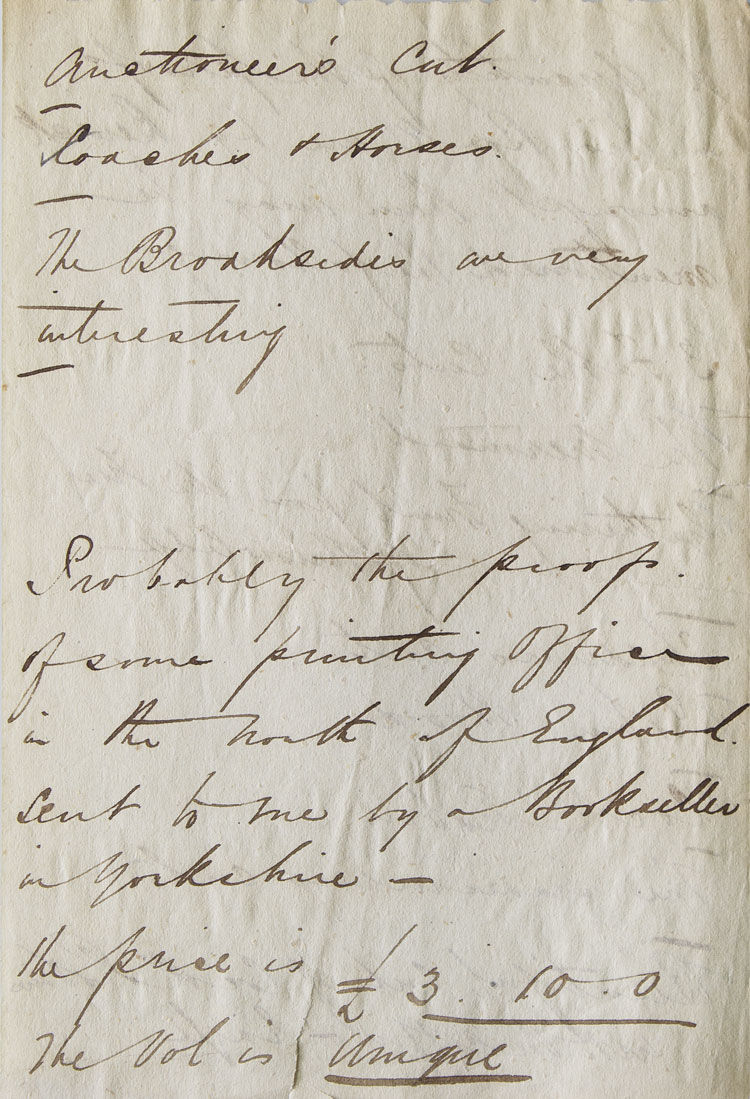 Auctioneer's Cut.
Coaches & Horses.
The Broadsides are very
interesting
Probably the proofs.
of some printing Office
in the North of England.
sent to me by a Bookseller
in Yorkshire —
the price is £3. 10. 0
The Vol is Unique